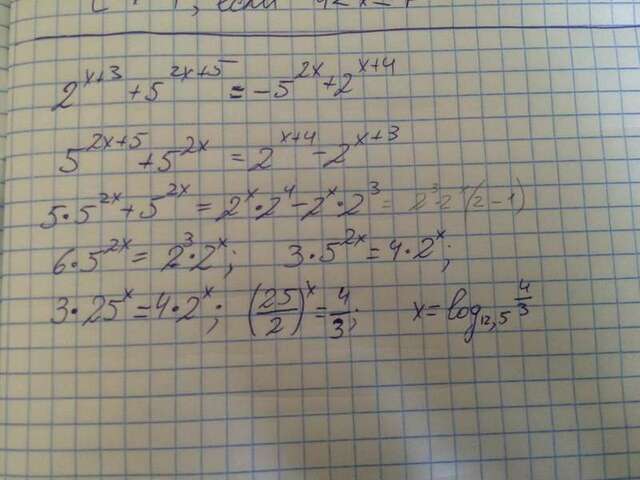 , если
2^{x+3} + 5^{2x+5} = -5^{2x} + 2^{x+4}
5^{2x+5} + 5^{2x} = 2^{x+4} - 2^{x+3}
5·5^{2x} + 5^{2x} = 2^x·2^4 - 2^x·2^3 = 2^3·2^x(2-1)
6·5^{2x} = 2^3·2^x; 3·5^{2x} = 4·2^x;
3·25^x = 4·2^x; (25/2)^x = 4/3; x = log_{12,5} 4/3